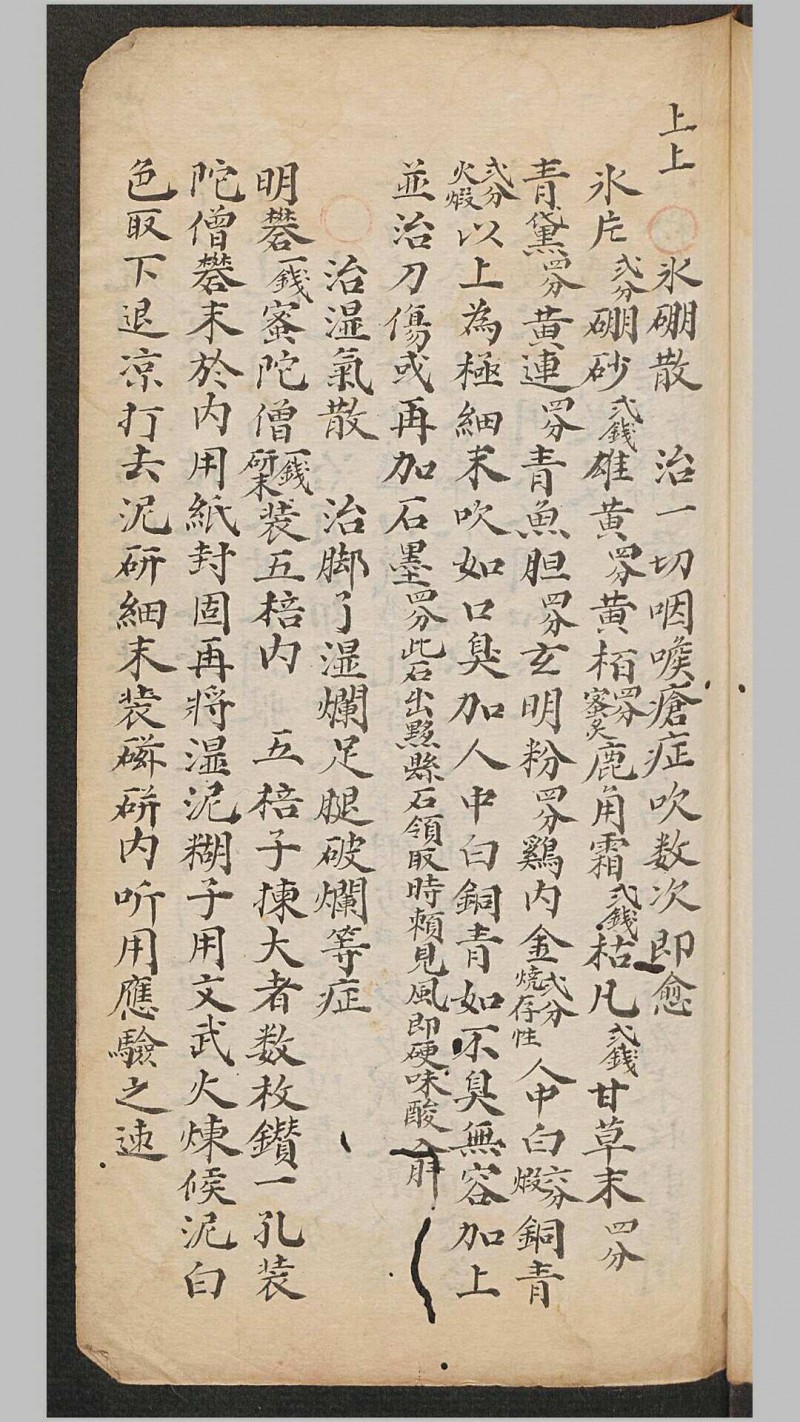 上上
氷硼散　治一切咽喉瘡症吹数次即愈
氷片弍分硼砂弍錢雄黄四分黄栢四分蜜炙鹿角霜弍錢枯凡弍錢甘草末四分
青黛四分黄連四分青魚胆四分玄明粉四分鷄内金弍分燒存性人中白六分煅銅青
弍分火煅以上為極細末吹如口臭加人中白銅青如不臭無容加上
並治刀傷或再加石墨四分此石出黟縣石領取時頼見風即硬味酸入肝
治湿氣散　治脚丫湿爛足腿破爛等症
明礬一錢蜜陀僧一錢研末装五棓内　五棓子揀大者数枚鑽一孔装
陀僧礬末於内用紙封固再將湿泥糊子用文武火煉候泥白
色取下退凉打去泥研細末装磁硑内听用應驗之速